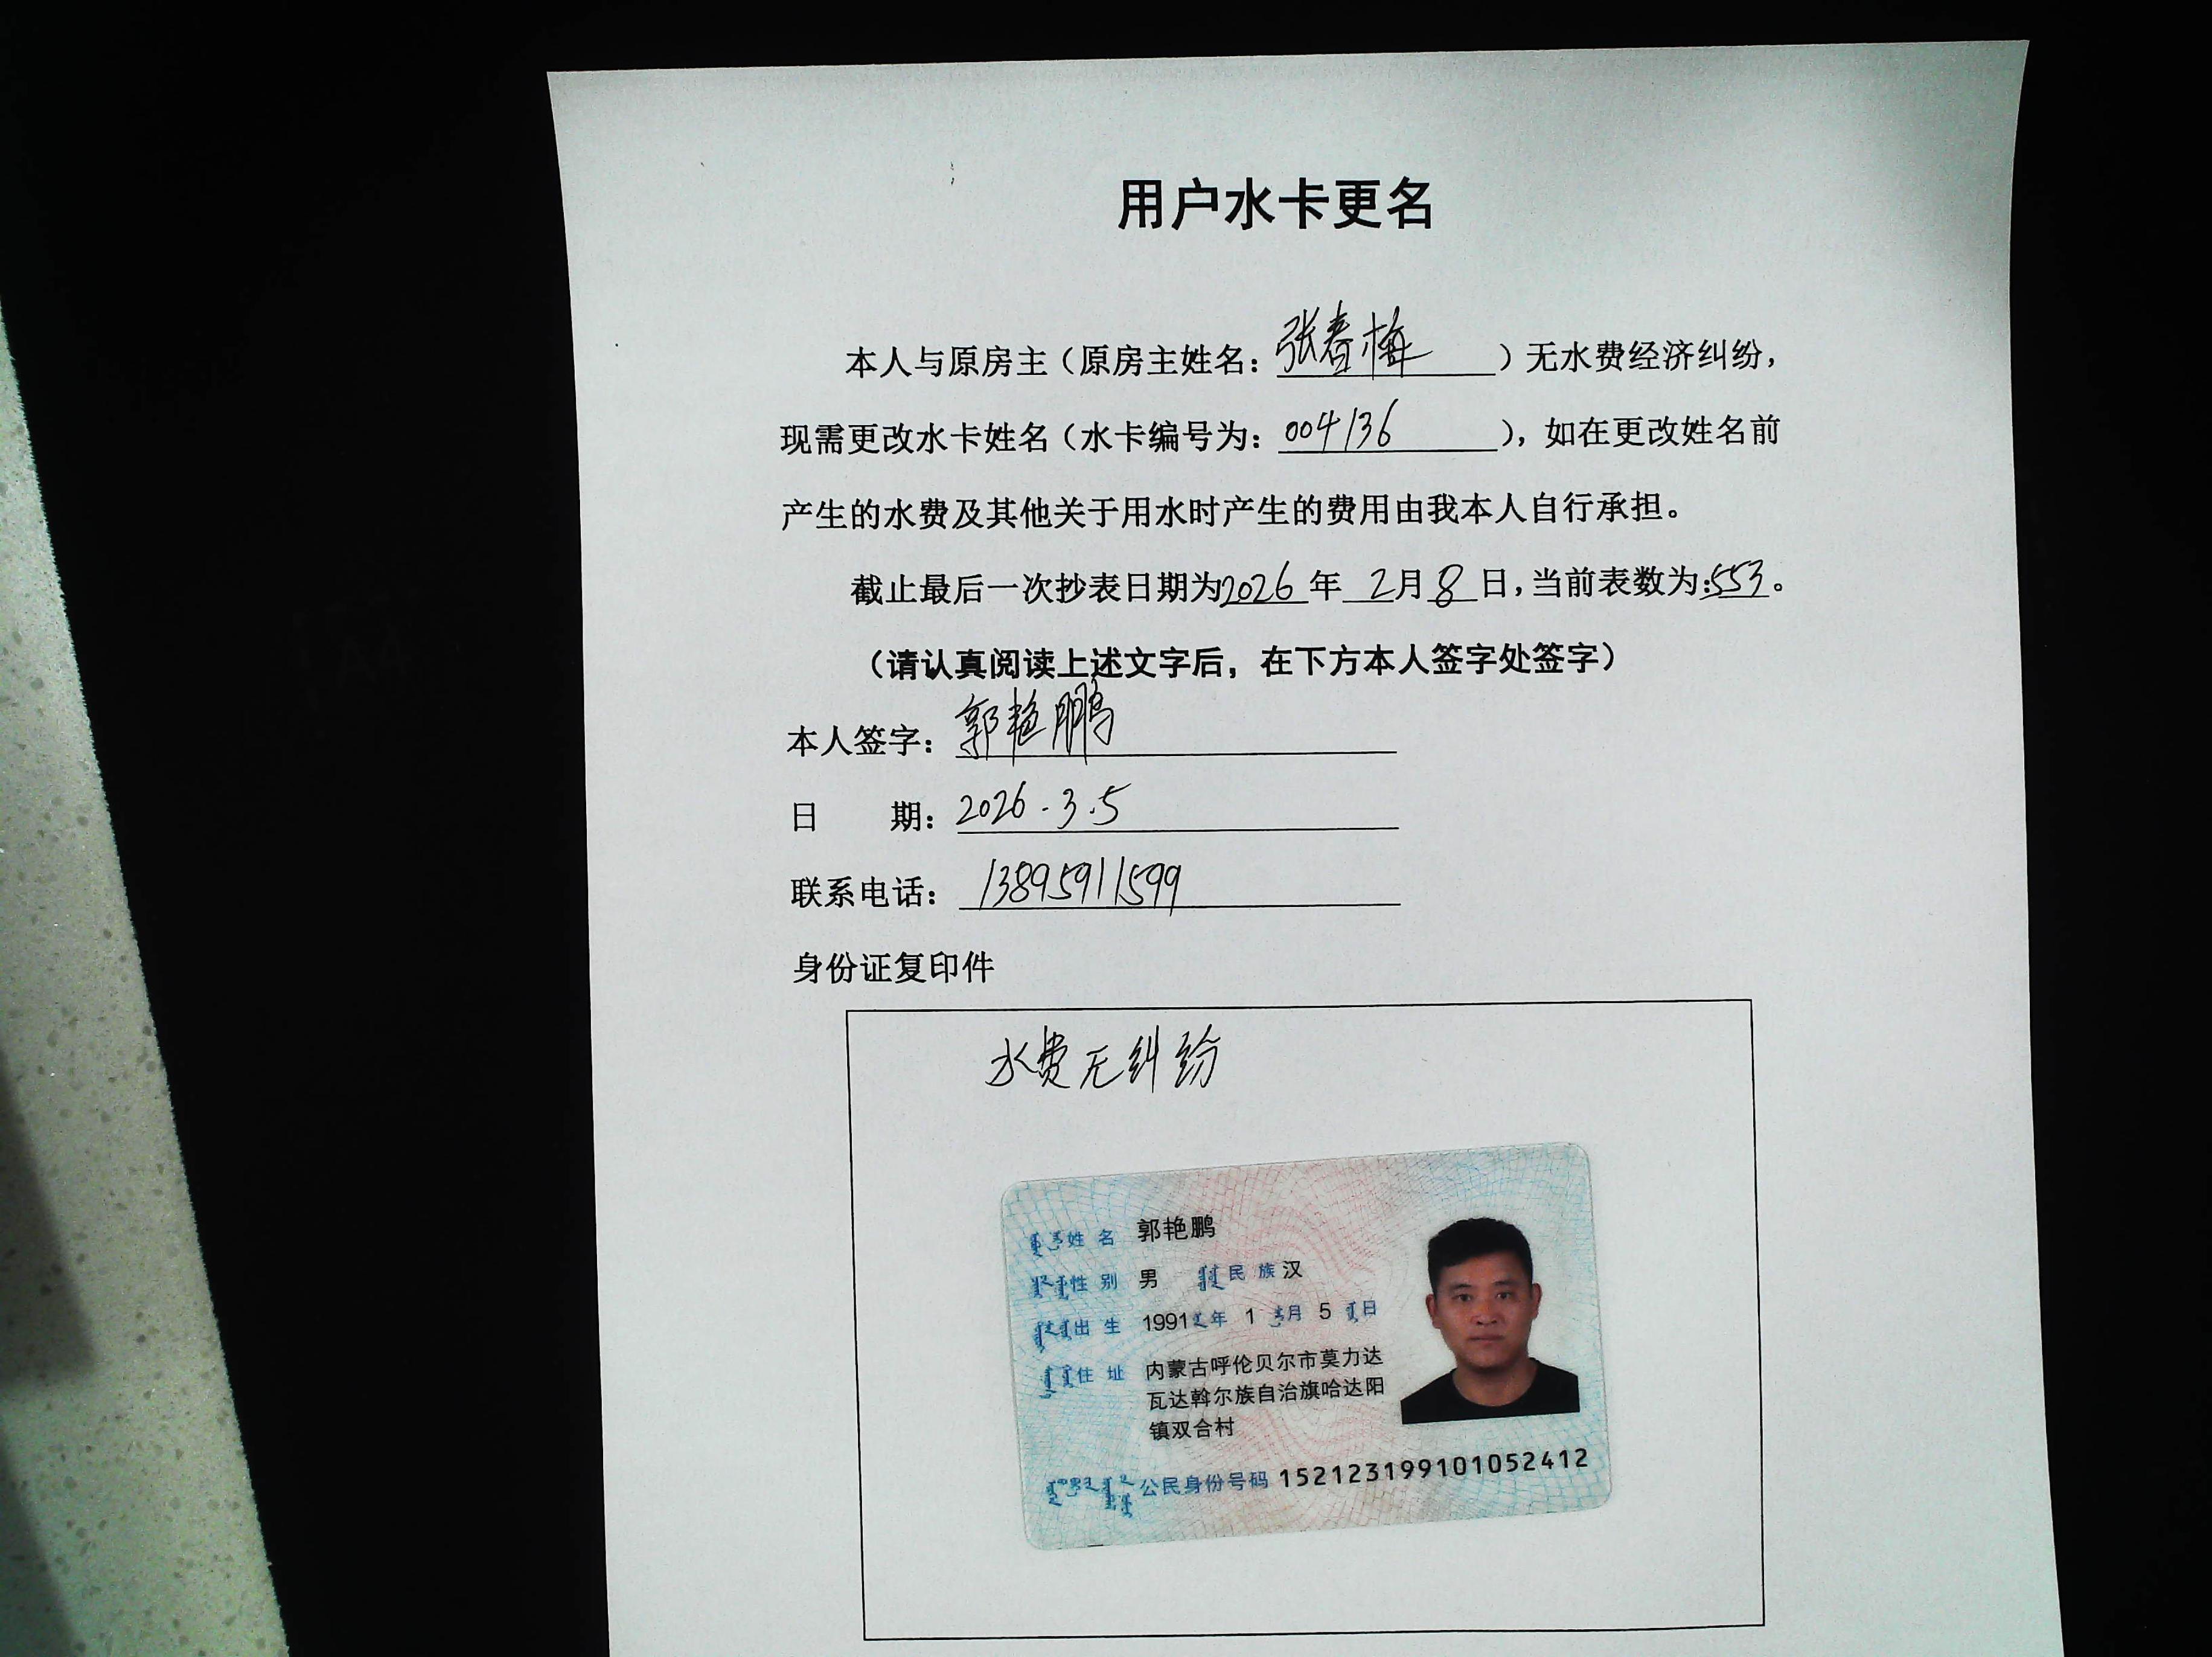 用户水卡更名
本人与原房主（原房主姓名：张春梅）无水费经济纠纷，
现需更改水卡姓名（水卡编号为：004136），如在更改姓名前
产生的水费及其他关于用水时产生的费用由我本人自行承担。
截止最后一次抄表日期为2026年2月8日，当前表数为：553。
（请认真阅读上述文字后，在下方本人签字处签字）
本人签字：郭艳鹏
日期：2026.3.5
联系电话：13895911599
身份证复印件
水费无纠纷
姓名 郭艳鹏
性别 男 民族 汉
出生 1991年1月5日
住址 内蒙古呼伦贝尔市莫力达
瓦达斡尔族自治旗哈达阳
镇双合村
公民身份号码 152123199101052412